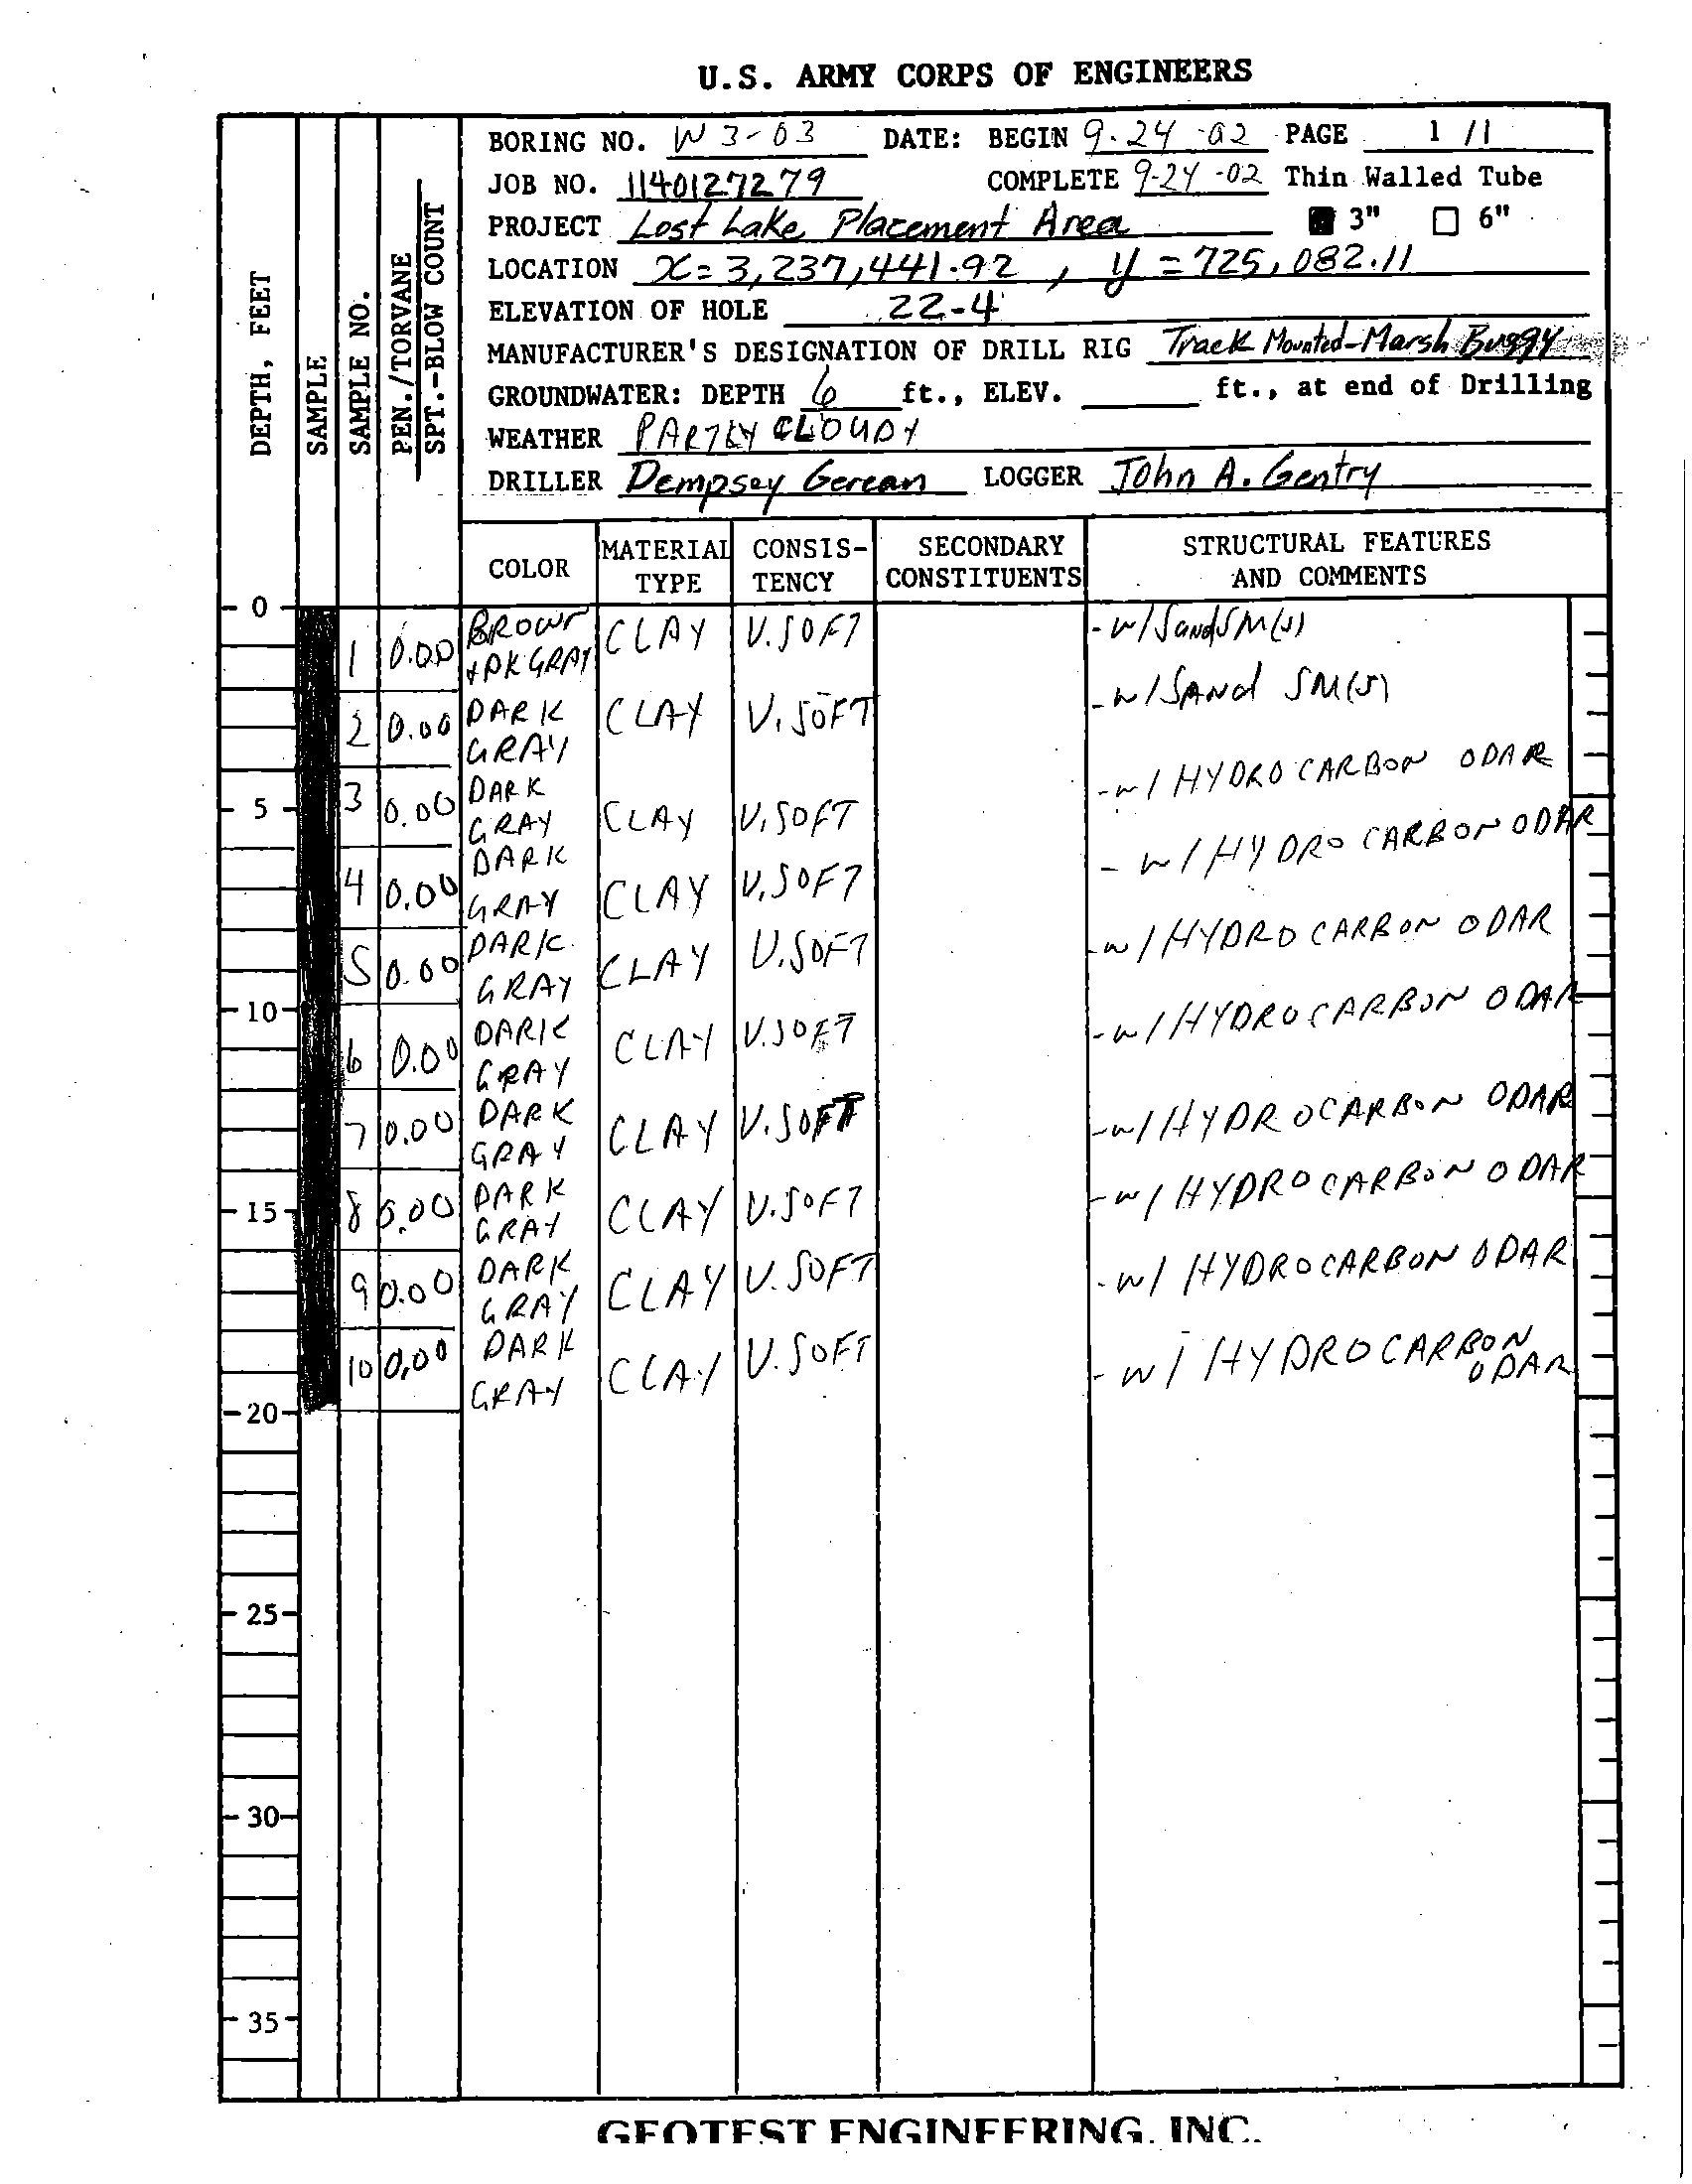 U.S. ARMY CORPS OF ENGINEERS
BORING NO. W 3-03 DATE: BEGIN 9-24-02 PAGE 1 /1
JOB NO. 1140127279 COMPLETE 9-24-02 Thin Walled Tube
PROJECT Lost Lake Placement Area 3" 6"
LOCATION X=3,237,441.92 , y=725,082.11
ELEVATION OF HOLE 22-4
MANUFACTURER'S DESIGNATION OF DRILL RIG Track Mounted-Marsh Buggy
GROUNDWATER: DEPTH 6 ft., ELEV. ft., at end of Drilling
WEATHER PARTLY CLOUDY
DRILLER Dempsey Gerean LOGGER John A. Gentry
DEPTH, FEET
SAMPLE
SAMPLE NO.
PEN./TORVANE
SPT.-BLOW COUNT
COLOR MATERIAL TYPE CONSIS-TENCY SECONDARY CONSTITUENTS STRUCTURAL FEATURES AND COMMENTS
0
1 0.00 BROWN +DK GRAY CLAY V.SOFT -w/Sand SM(s)
2 0.00 DARK GRAY CLAY V.SOFT -w/SANd SM(s)
5
3 0.00 DARK GRAY CLAY V.SOFT -w/ HYDROCARBON ODAR
4 0.00 DARK GRAY CLAY V.SOFT -w/HYDROCARBON ODAR
5 0.00 DARK GRAY CLAY V.SOFT -w/HYDROCARBON ODAR
10
6 0.00 DARK GRAY CLAY V.SOFT -w/HYDROCARBON ODAR
7 0.00 DARK GRAY CLAY V.SOFT -w/HYDROCARBON ODAR
15
8 0.00 DARK GRAY CLAY V.SOFT -w/HYDROCARBON ODAR
9 0.00 DARK GRAY CLAY V.SOFT -w/ HYDROCARBON ODAR
10 0.00 DARK GRAY CLAY V.SOFT -w/ HYDROCARBON ODAR
20
25
30
35
GEOTEST ENGINEERING, INC.